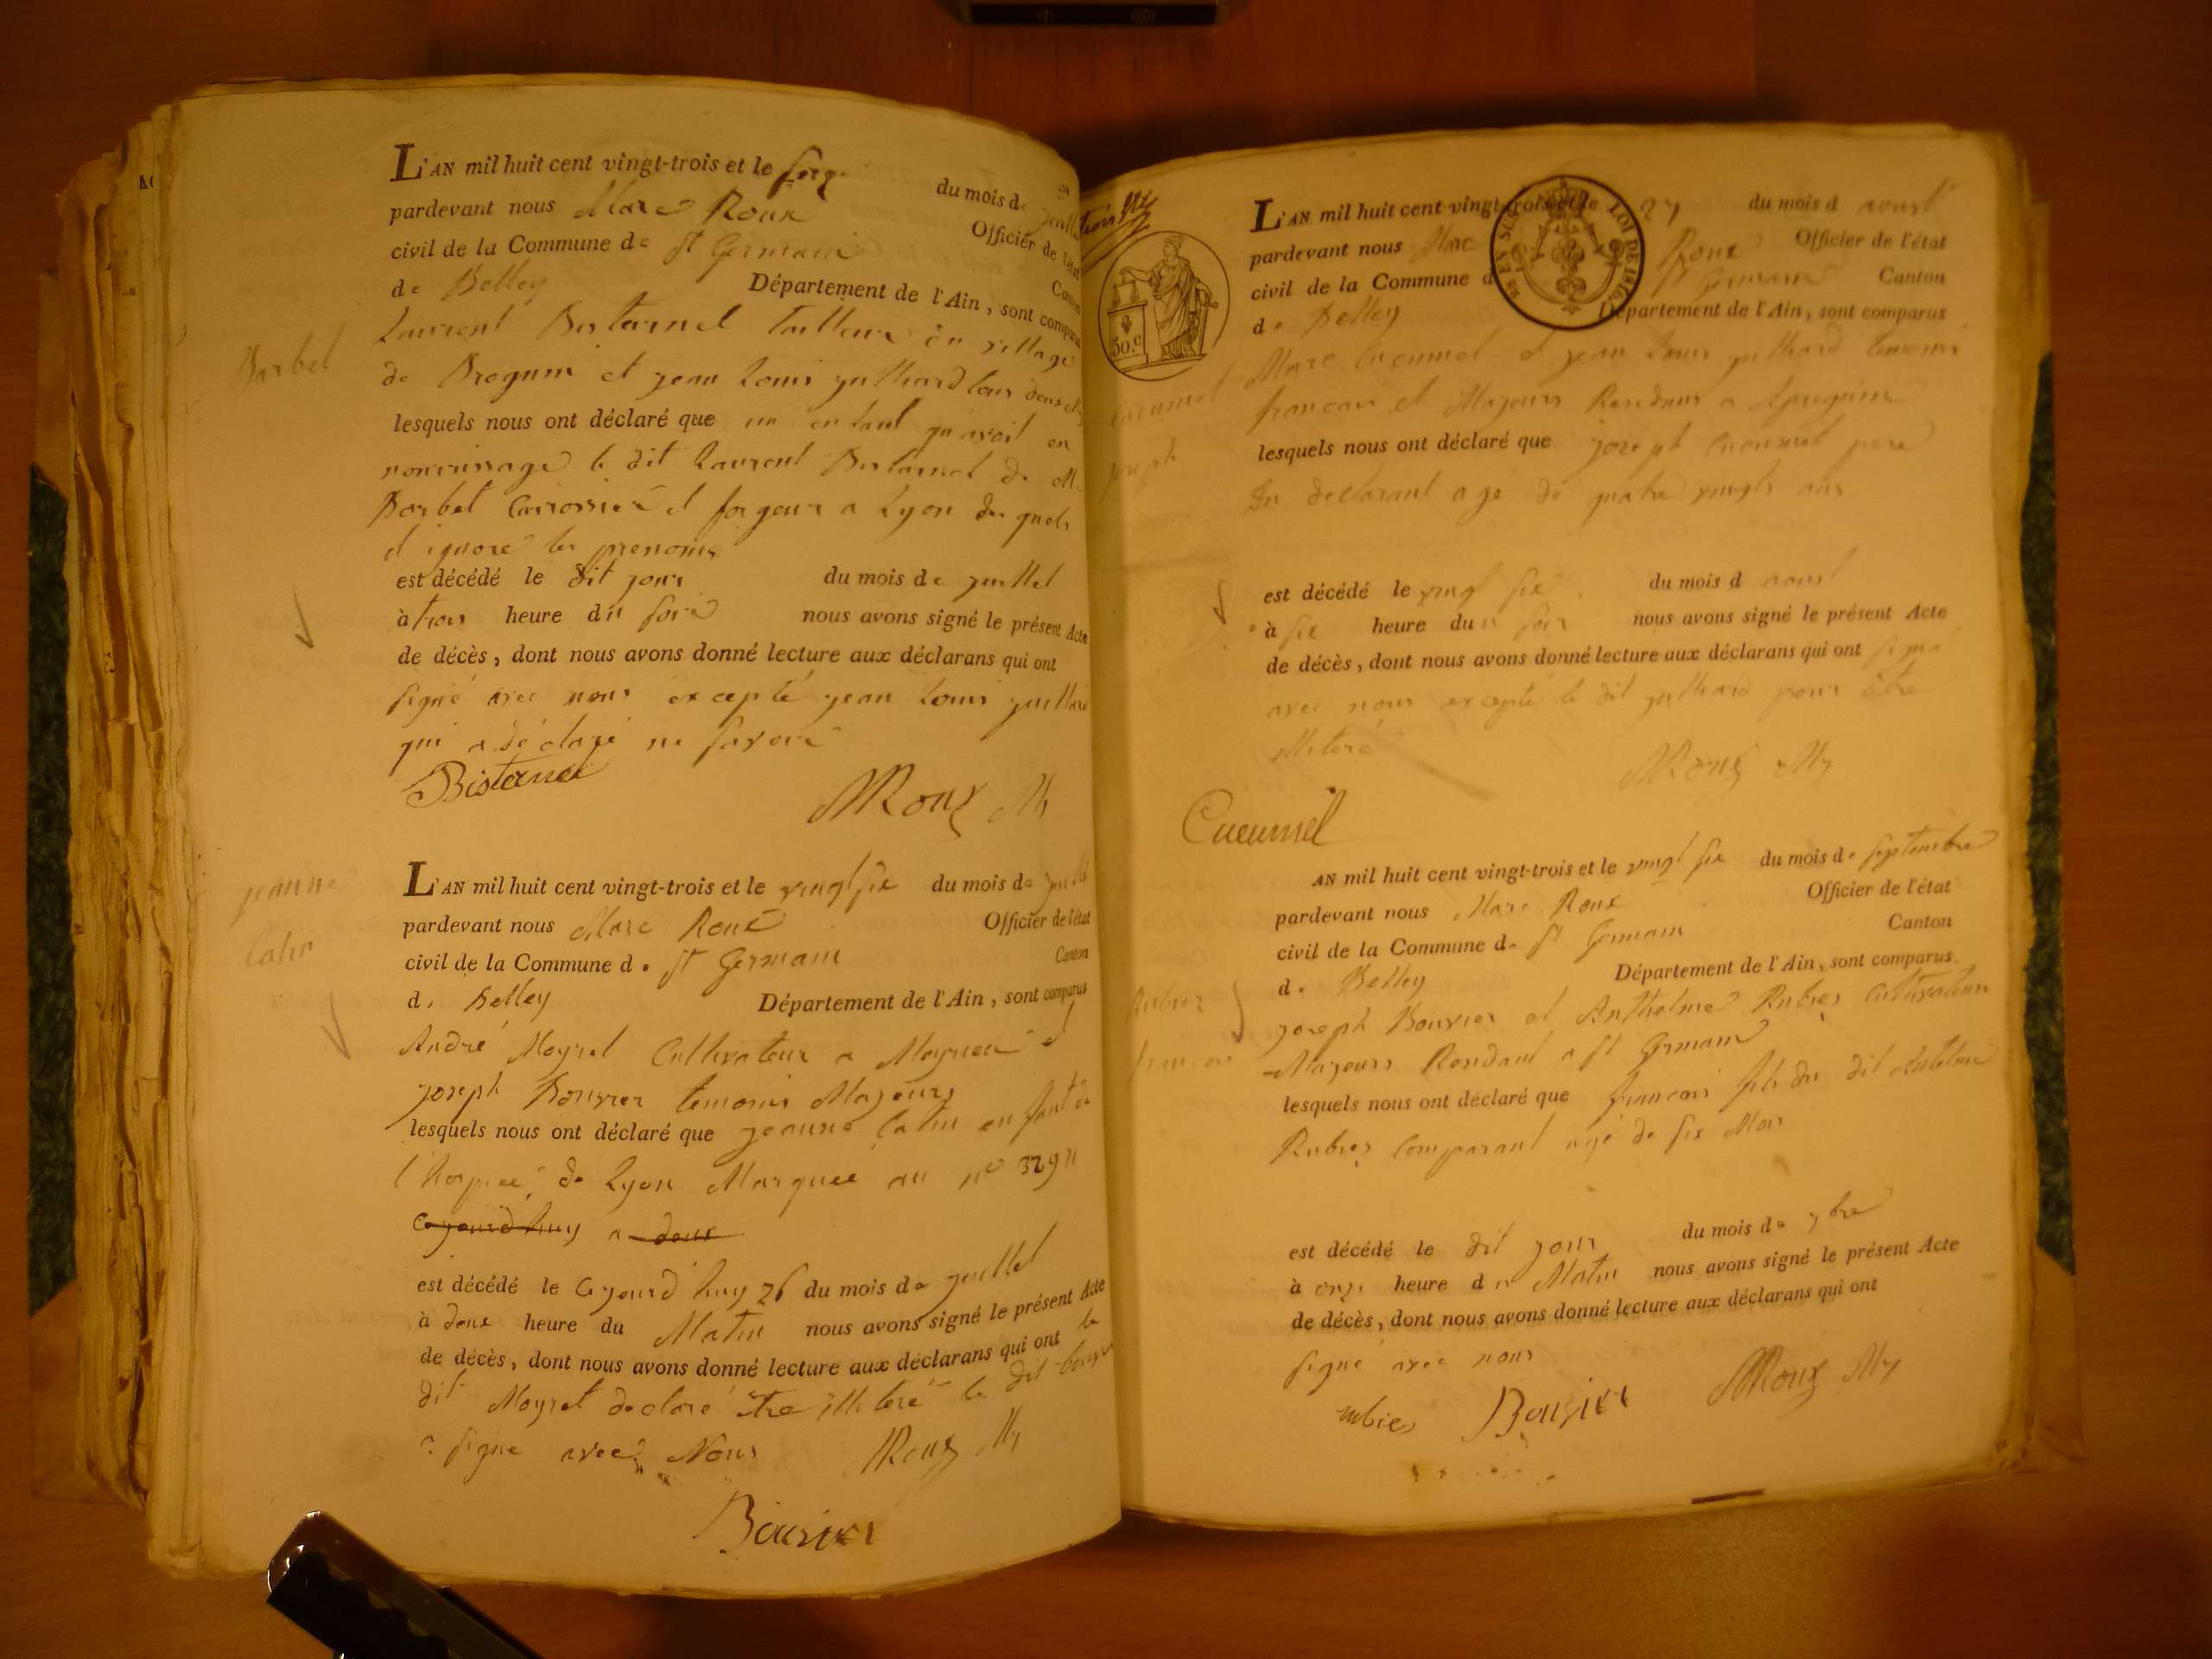 L'AN mil huit cent vingt-trois et le seize du mois de juillet
pardevant nous Marc Roux Officier de l'état
civil de la Commune de St Germain Canton
de Belley Département de l'Ain, sont comparus
Laurent Bistarnel tailleur en village
de Brognin et jean Louis juilliard tous deux
lesquels nous ont déclaré que un enfant qu avait en
nourrissage le dit Laurent Bistarnel de M.
Barbet Carrossier et forgeur a Lyon des quels
il ignore les prenoms
est décédé le dit jour du mois de juillet
à trois heure du soire nous avons signé le présent Acte
de décès, dont nous avons donné lecture aux déclarans qui ont
signé avec nous excepté jean Louis juilliard
qui a déclaré ne savoir
Bistarnel
MRoux My
Barbet
L'AN mil huit cent vingt-trois et le vingt six du mois de juillet
pardevant nous Marc Roux Officier de l'état
civil de la Commune d. St Germain Canton
d. Belley Département de l'Ain, sont comparus
André Meyret Cultivateur a Meyrieu et
joseph Bouvier temoins Majeurs
lesquels nous ont déclaré que jeanne Catin enfant de
l'hospice de Lyon Marquée au n° 329
cejourd'huy a deux
est décédé le cejourd huy 26 du mois de juillet
à deux heure du Matin nous avons signé le présent Acte
de décès, dont nous avons donné lecture aux déclarans qui ont le
dit Meyret declaré être illiteré le dit bouvier
a signé avec Nous
MRoux My
Bouvier
jeanne
Catin
L'AN mil huit cent vingt-trois et le 27 du mois d aoust
pardevant nous Marc Roux Officier de l'état
civil de la Commune d St Germain Canton
d. Belley Département de l'Ain, sont comparus
Marc Cucumel et jean Louis juilliard temoins
francais et Majeurs Rendans a Apregnin
lesquels nous ont déclaré que joseph Cucumel pere
du declarant agé de quatre vingts ans
est décédé le vingt six du mois d aoust
à six heure du soir nous avons signé le présent Acte
de décès, dont nous avons donné lecture aux déclarans qui ont signé
avec nous excepté le dit juilliard pour être
illiteré
MRoux My
Cucumel
50.c
LOI DE 1816.
Cucumel
joseph
AN mil huit cent vingt-trois et le vingt six du mois de septembre
pardevant nous Marc Roux Officier de l'état
civil de la Commune d. St Germain Canton
d. Belley Département de l'Ain, sont comparus
joseph Bouvier et Anthelme Rubier Cultivateurs
Majeurs Rendant a St Germain
lesquels nous ont déclaré que francois fils du dit Antelme
Rubier comparant agé de six Mois
est décédé le dit jour du mois de 7bre
à onze heure du Matin nous avons signé le présent Acte
de décès, dont nous avons donné lecture aux déclarans qui ont
signé avec nous
rubier Bouvier MRoux My
Rubier
francois